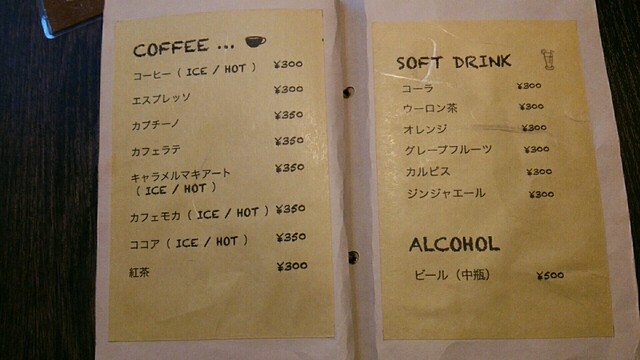 COFFEE ...
コーヒー ( ICE / HOT ) ¥300
エスプレッソ ¥300
カプチーノ ¥350
カフェラテ ¥350
キャラメルマキアート ¥350
( ICE / HOT )
カフェモカ ( ICE / HOT ) ¥350
ココア ( ICE / HOT ) ¥350
紅茶 ¥300
SOFT DRINK
コーラ ¥300
ウーロン茶 ¥300
オレンジ ¥300
グレープフルーツ ¥300
カルピス ¥300
ジンジャエール ¥300
ALCOHOL
ビール（中瓶） ¥500